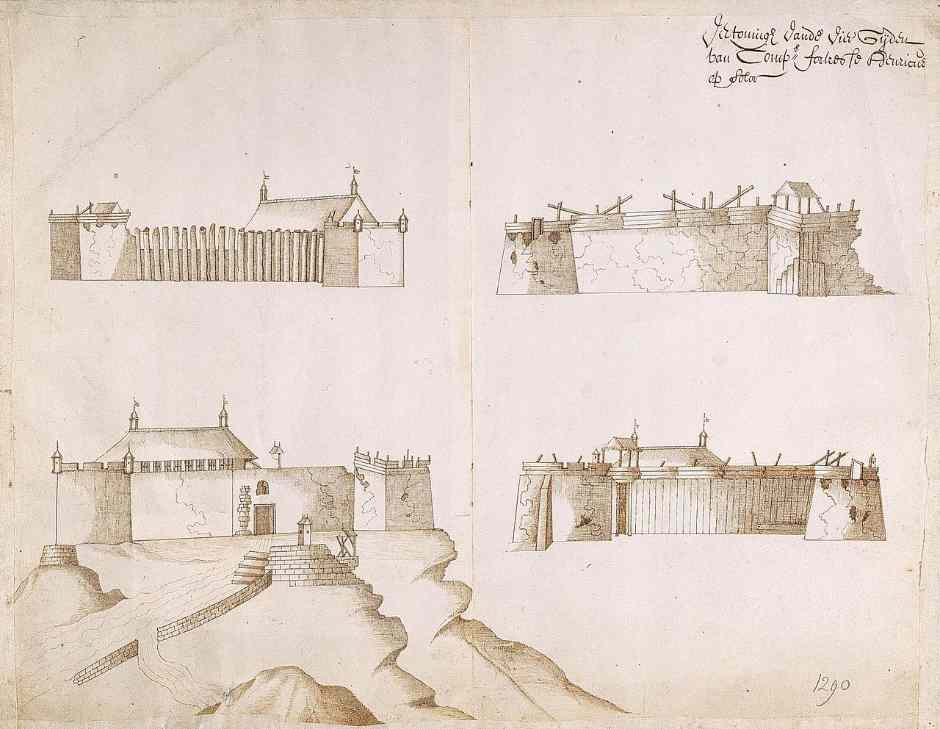 Vertoninge vande vier Zijden
van Comp:e fortresse Henricus
op Solor
1290